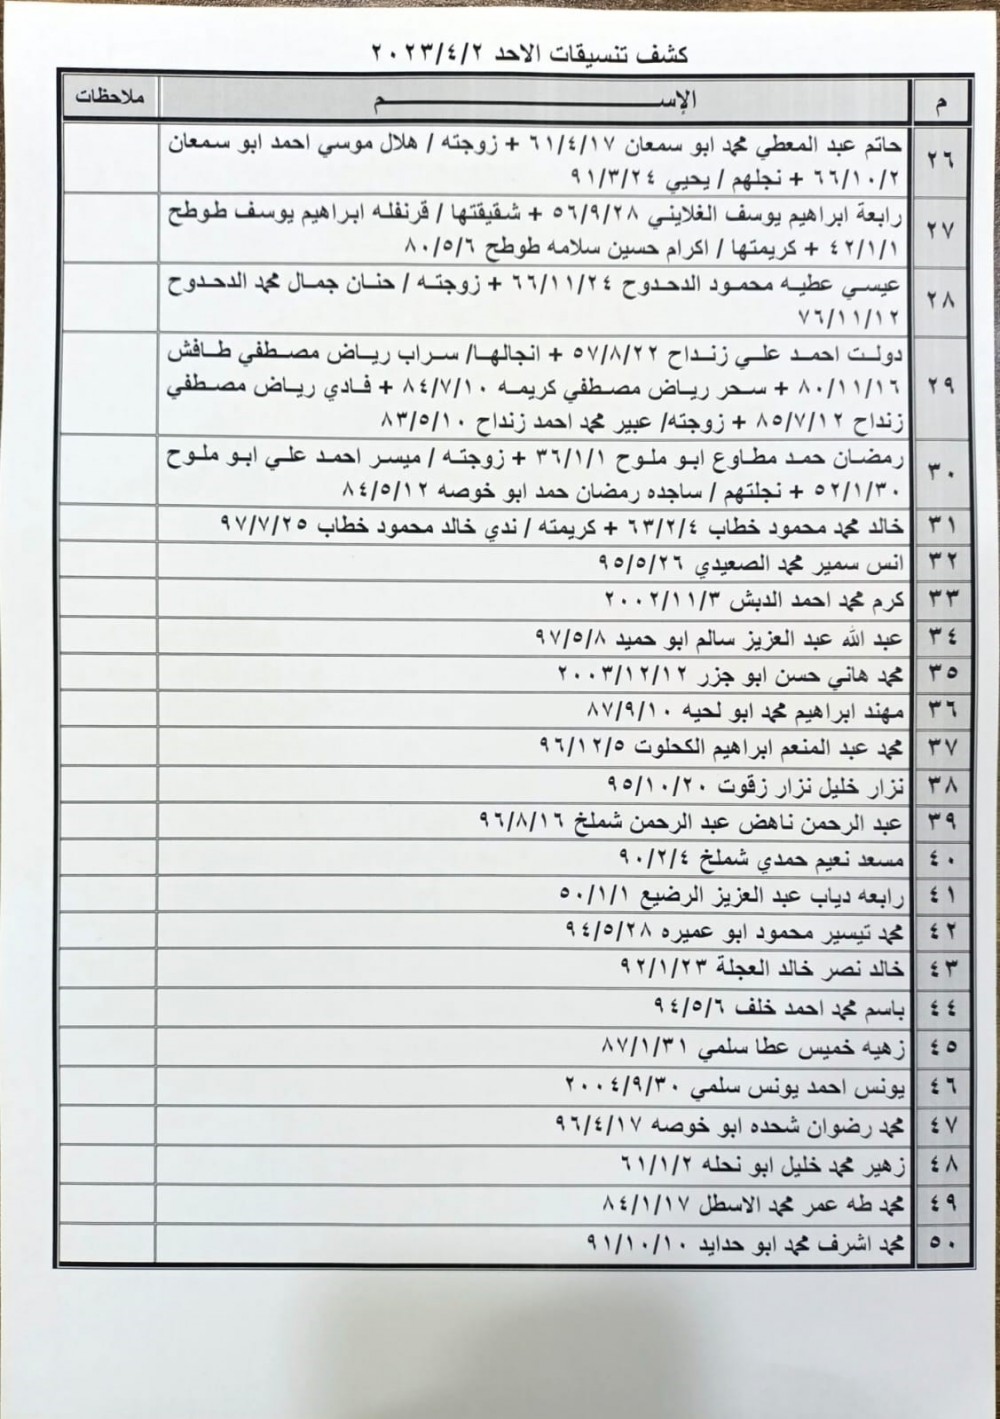 كشف تنسيقات الاحد ٢٠٢٣/٤/٢
م الإســـم ملاحظات
٢٦ حاتم عبد المعطي محمد ابو سمعان ٦١/٤/١٧ + زوجته / هلال موسي احمد ابو سمعان
٦٦/١٠/٢ + نجلهم / يحيي ٩١/٣/٢٤
٢٧ رابعة ابراهيم يوسف الغلاييني ٥٦/٩/٢٨ + شقيقتها / قرنفله ابراهيم يوسف طوطح
٤٢/١/١ + كريمتها / اكرام حسين سلامه طوطح ٨٠/٥/٦
٢٨ عيسي عطيه محمود الدحدوح ٦٦/١١/٢٤ + زوجته / حنان جمال محمد الدحدوح
٧٦/١١/١٢
٢٩ دولت احمد علي زنداح ٥٧/٨/٢٢ + انجالها/ سراب رياض مصطفي طافش
٨٠/١١/١٦ + سحر رياض مصطفي كريمه ٨٤/٧/١٠ + فادي رياض مصطفي
زنداح ٨٥/٧/١٢ + زوجته/ عبير محمد احمد زنداح ٨٣/٥/١٠
٣٠ رمضان حمد مطاوع ابو ملوح ٣٦/١/١ + زوجته / ميسر احمد علي ابو ملوح
٥٢/١/٣٠ + نجلتهم / ساجده رمضان حمد ابو خوصه ٨٤/٥/١٢
٣١ خالد محمد محمود خطاب ٦٣/٢/٤ + كريمته / ندي خالد محمود خطاب ٩٧/٧/٢٥
٣٢ انس سمير محمد الصعيدي ٩٥/٥/٢٦
٣٣ كرم محمد احمد الدبش ٢٠٠٢/١١/٣
٣٤ عبد الله عبد العزيز سالم ابو حميد ٩٧/٥/٨
٣٥ محمد هاني حسن ابو جزر ٢٠٠٣/١٢/١٢
٣٦ مهند ابراهيم محمد ابو لحيه ٨٧/٩/١٠
٣٧ محمد عبد المنعم ابراهيم الكحلوت ٩٦/١٢/٥
٣٨ نزار خليل نزار زقوت ٩٥/١٠/٢٠
٣٩ عبد الرحمن ناهض عبد الرحمن شملخ ٩٦/٨/١٦
٤٠ مسعد نعيم حمدي شملخ ٩٠/٢/٤
٤١ رابعه دياب عبد العزيز الرضيع ٥٠/١/١
٤٢ محمد تيسير محمود ابو عميره ٩٤/٥/٢٨
٤٣ خالد نصر خالد العجلة ٩٢/١/٢٣
٤٤ باسم محمد احمد خلف ٩٤/٥/٦
٤٥ زهيه خميس عطا سلمي ٨٧/١/٣١
٤٦ يونس احمد يونس سلمي ٢٠٠٤/٩/٣٠
٤٧ محمد رضوان شحده ابو خوصه ٩٦/٤/١٧
٤٨ زهير محمد خليل ابو نحله ٦١/١/٢
٤٩ محمد طه عمر محمد الاسطل ٨٤/١/١٧
٥٠ محمد اشرف محمد ابو حدايد ٩١/١٠/١٠